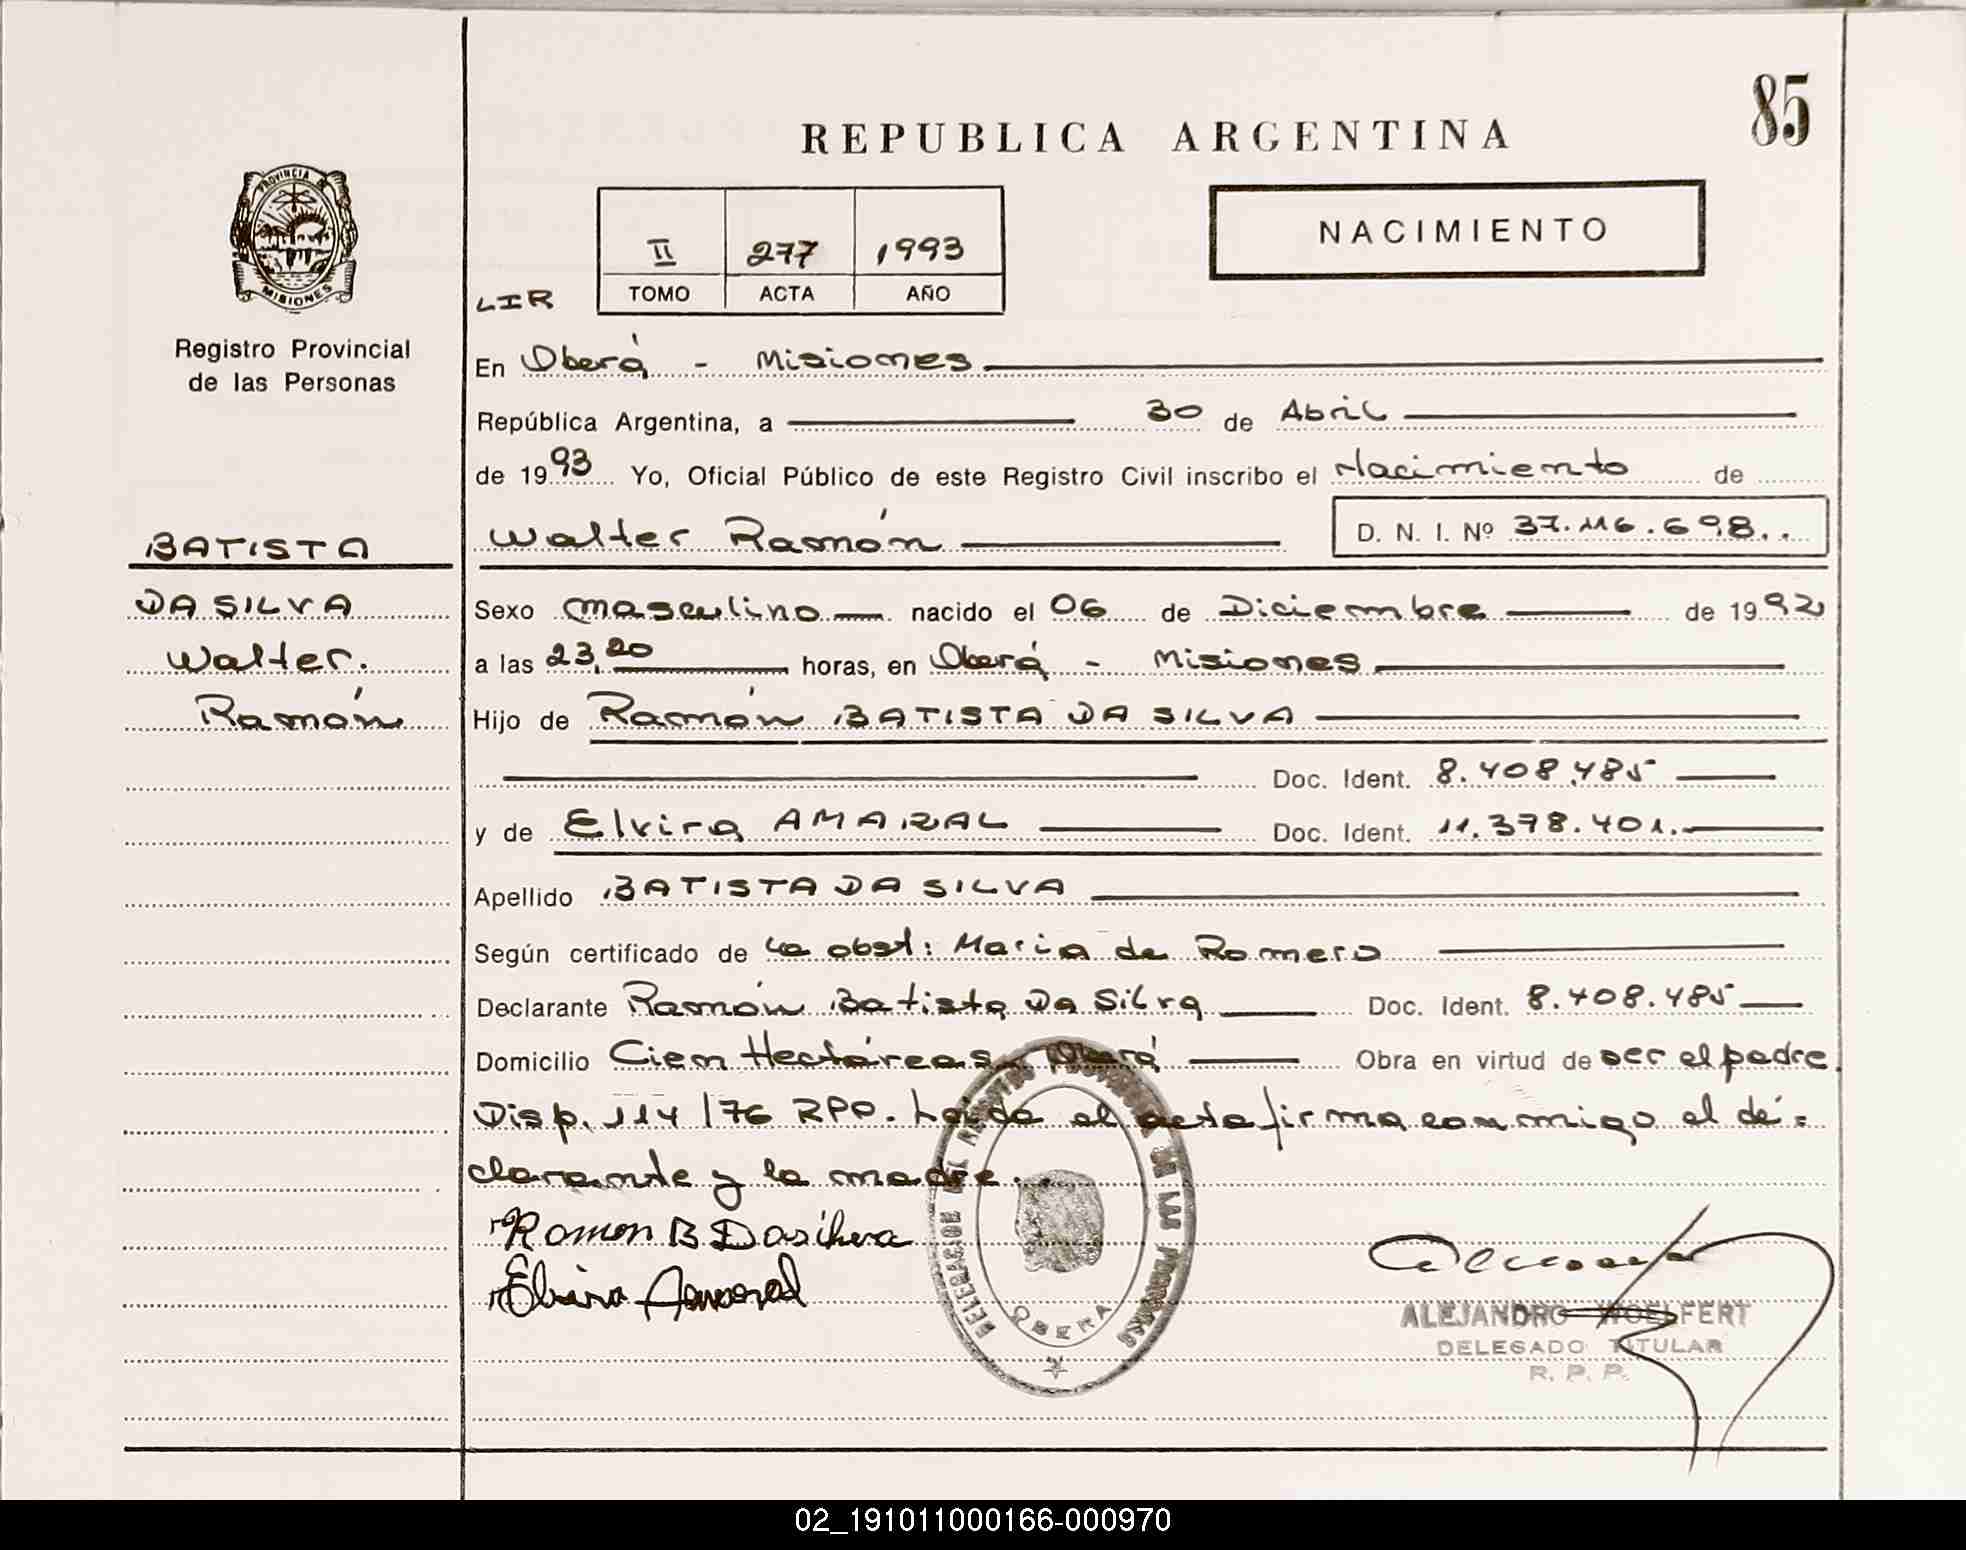 85
REPUBLICA ARGENTINA
NACIMIENTO
PROVINCIA DE
MISIONES
II 277 1993
TOMO ACTA AÑO
LIR
Registro Provincial
de las Personas
En Oberá - Misiones
República Argentina, a 30 de Abril
de 1993 Yo, Oficial Público de este Registro Civil inscribo el Nacimiento de
Walter Ramón D. N. I. Nº 37.116.698..
BATISTA
DA SILVA
Walter.
Ramón
Sexo masculino nacido el 06 de Diciembre de 1992
a las 23,20 horas, en Oberá - Misiones
Hijo de Ramón BATISTA DA SILVA
Doc. Ident. 8.408.485
y de Elvira AMARAL Doc. Ident. 11.378.401.
Apellido BATISTA DA SILVA
Según certificado de la obst: Maria de Romero
Declarante Ramón Batista Da Silva Doc. Ident. 8.408.485
Domicilio Cien Hectáreas - Oberá Obra en virtud de ser el padre.
Disp. 114/76 RPP. Leida el acta firma conmigo el de=
clarante y la madre.
Ramon B Dasilva
Elvira Amaral
DELEGACION DEL REGISTRO PROVINCIAL DE LAS PERSONAS
OBERA
ALEJANDRO WOELFERT
DELEGADO TITULAR
R. P. P.
02_191011000166-000970